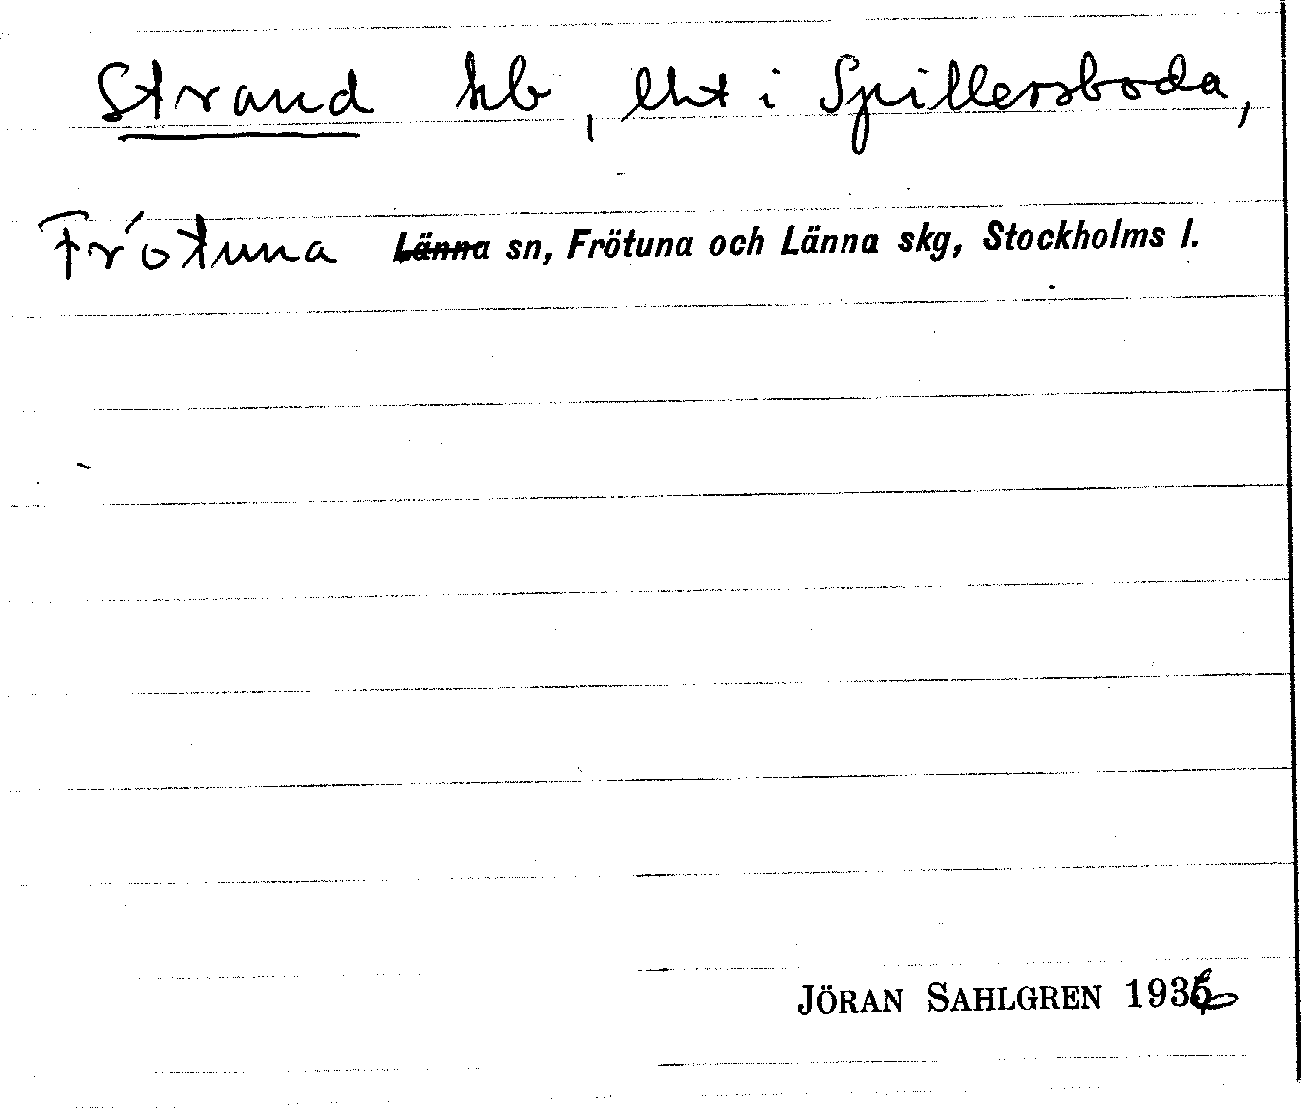 Strand hb, lht i Spillersboda,
Frötuna Länna sn, Frötuna och Länna skg, Stockholms l.
JÖRAN SAHLGREN 1936